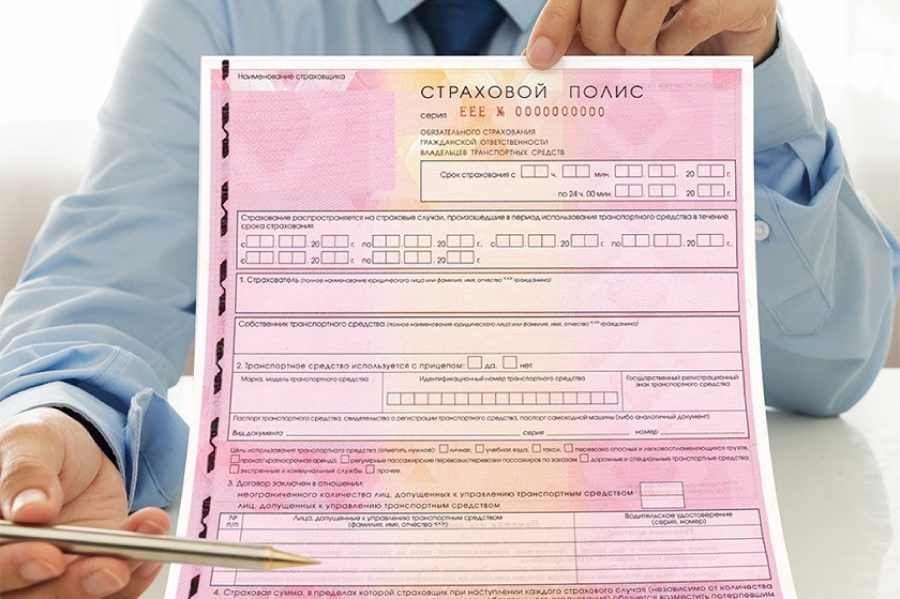 Наименование страховщика
СТРАХОВОЙ ПОЛИС
серия ЕЕЕ № 0000000000
ОБЯЗАТЕЛЬНОГО СТРАХОВАНИЯ
ГРАЖДАНСКОЙ ОТВЕТСТВЕННОСТИ
ВЛАДЕЛЬЦЕВ ТРАНСПОРТНЫХ СРЕДСТВ
Срок страхования с ч. мин. 20 г.
по 24 ч. 00 мин. 20 г.
Страхование распространяется на страховые случаи, произошедшие в период использования транспортного средства в течение
срока страхования
с . 20 г. по . 20 г. с . 20 г. по . 20 г.
с . 20 г. по . 20 г.
1. Страхователь (полное наименование юридического лица или фамилия, имя, отчество гражданина)
Собственник транспортного средства (полное наименование юридического лица или фамилия, имя, отчество гражданина)
2. Транспортное средство используется с прицепом: да, нет.
Марка, модель транспортного средства Идентификационный номер транспортного средства Государственный регистрационный
знак транспортного средства
Паспорт транспортного средства, свидетельство о регистрации транспортного средства, паспорт самоходной машины (либо аналогичный документ)
Вид документа серия номер
Цель использования транспортного средства (отметить нужное): личная, учебная езда, такси, перевозка опасных и легковоспламеняющихся грузов,
прокат/краткосрочная аренда, регулярные пассажирские перевозки/перевозки пассажиров по заказам, дорожные и специальные транспортные средства,
экстренные и коммунальные службы, прочее.
3. Договор заключен в отношении:
неограниченного количества лиц, допущенных к управлению транспортным средством
лиц, допущенных к управлению транспортным средством
№ Лица, допущенные к управлению транспортным средством Водительское удостоверение
п/п (фамилия, имя, отчество) (серия, номер)
4. Страховая сумма, в пределах которой страховщик при наступлении каждого страхового случая (независимо от количества
обязуется возместить потерпевшим